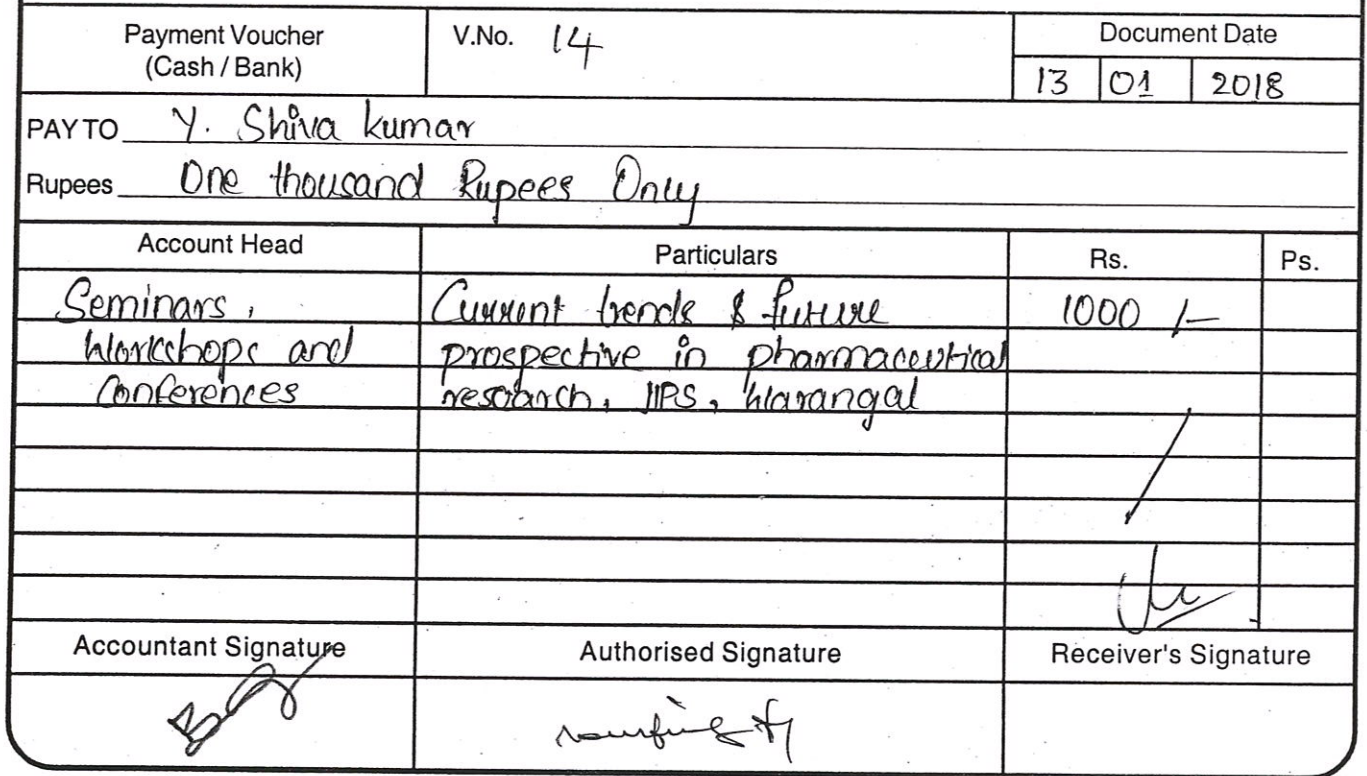 Payment Voucher
(Cash / Bank)
V.No. 14
Document Date
13 01 2018
PAY TO Y. Shiva kumar
Rupees One thousand Rupees Only
Account Head Particulars Rs. Ps.
Seminars, Current trends & future 1000 /-
Workshops and prospective in pharmaceutical
Conferences research, IIPS, Warangal
Accountant Signature Authorised Signature Receiver's Signature